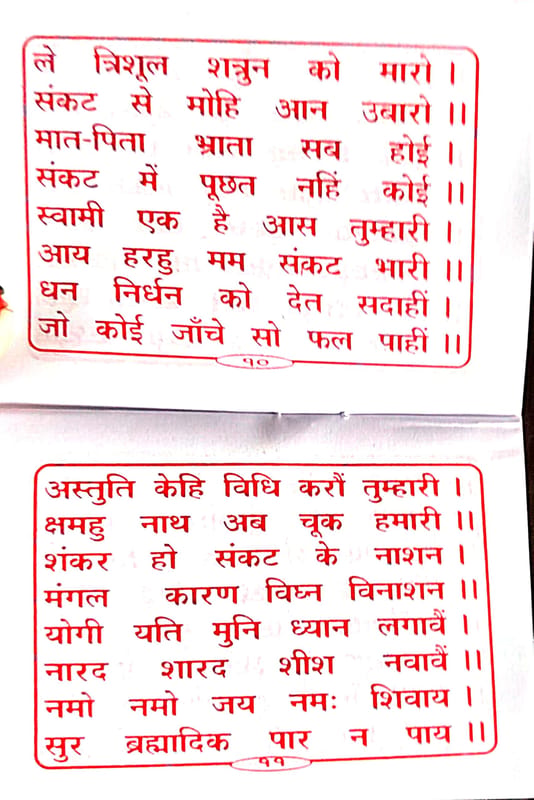 ले त्रिशूल शत्रुन को मारो ।
संकट से मोहि आन उबारो ।।
मात-पिता भ्राता सब होई ।
संकट में पूछत नहिं कोई ।।
स्वामी एक है आस तुम्हारी ।
आय हरहु मम संकट भारी ।।
धन निर्धन को देत सदाहीं ।
जो कोई जाँचे सो फल पाहीं ।।
१०
अस्तुति केहि विधि करौं तुम्हारी ।
क्षमहु नाथ अब चूक हमारी ।।
शंकर हो संकट के नाशन ।
मंगल कारण विघ्न विनाशन ।।
योगी यति मुनि ध्यान लगावैं ।
नारद शारद शीश नवावैं ।।
नमो नमो जय नमः शिवाय ।
सुर ब्रह्मादिक पार न पाय ।।
११